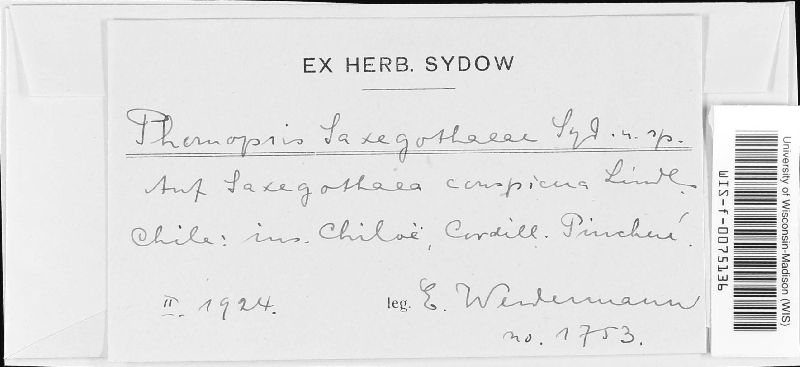 EX HERB. SYDOW
Phomopsis Saxegothaeae Syd. n. sp.
Auf Saxegothaea conspicua Lindl.
Chile: ins. Chiloë, Cordill. Pincheué.
II. 1924. leg. E. Werdermann
no. 1753.
University of Wisconsin-Madison (WIS)
WIS-f-0075136